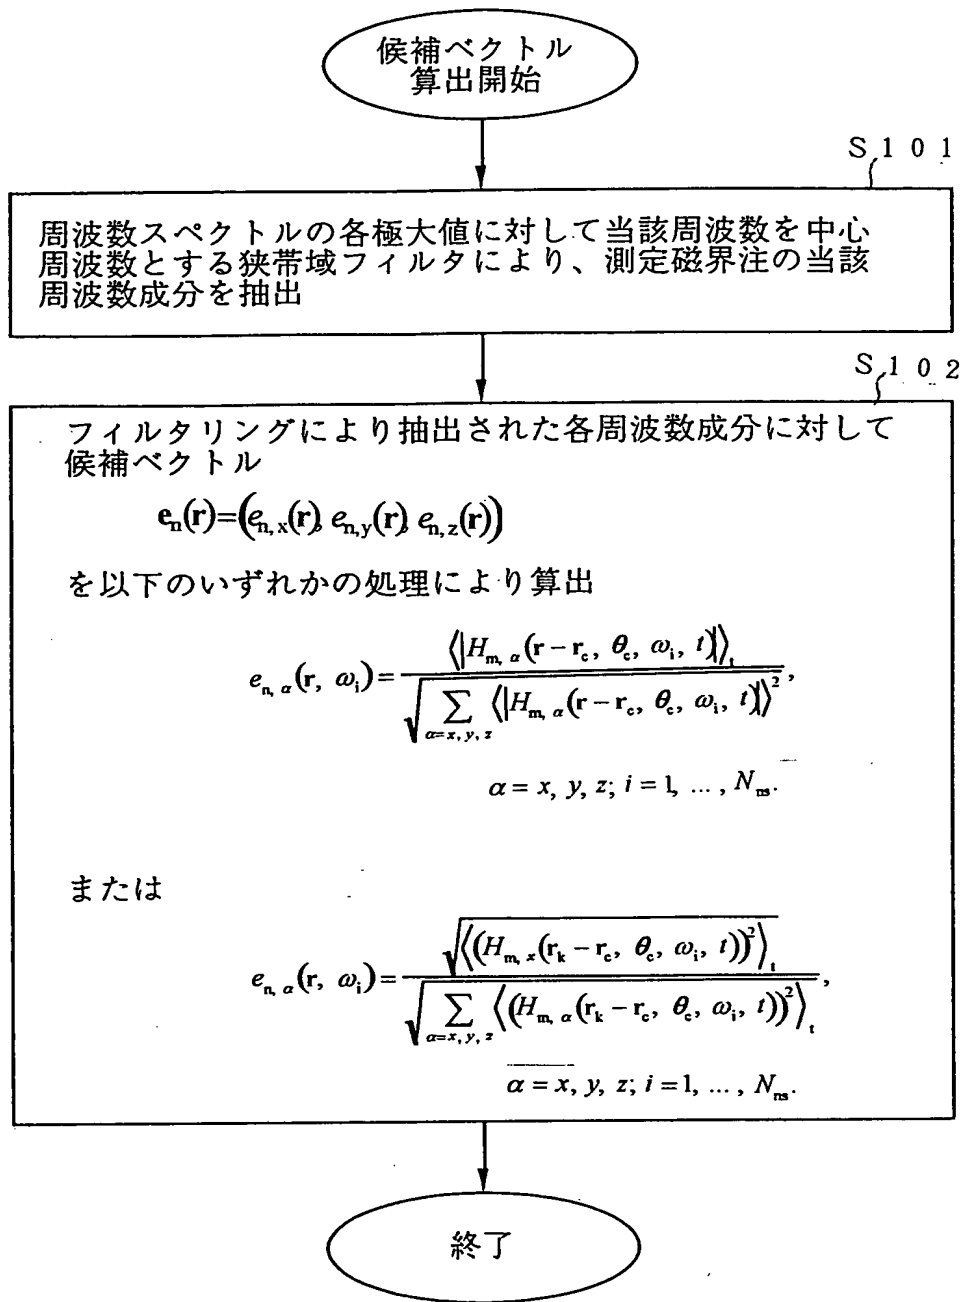 候補ベクトル
算出開始
S101
周波数スペクトルの各極大値に対して当該周波数を中心
周波数とする狭帯域フィルタにより、測定磁界注の当該
周波数成分を抽出
S102
フィルタリングにより抽出された各周波数成分に対して
候補ベクトル
e_n(r)=(e_{n,x}(r), e_{n,y}(r), e_{n,z}(r))
を以下のいずれかの処理により算出
e_{n, α}(r, ω_i)=\frac{⟨|H_{m, α}(r − r_c, θ_c, ω_i, t)|⟩_t}{\sqrt{\sum_{α=x, y, z}⟨|H_{m, α}(r − r_c, θ_c, ω_i, t)|⟩^2}},
α = x, y, z; i = 1, ... , N_{ns}.
または
e_{n, α}(r, ω_i)=\frac{\sqrt{⟨(H_{m, x}(r_k − r_c, θ_c, ω_i, t))^2⟩_t}}{\sqrt{\sum_{α=x, y, z}⟨(H_{m, α}(r_k − r_c, θ_c, ω_i, t))^2⟩_t}},
α = x, y, z; i = 1, ... , N_{ns}.
終了